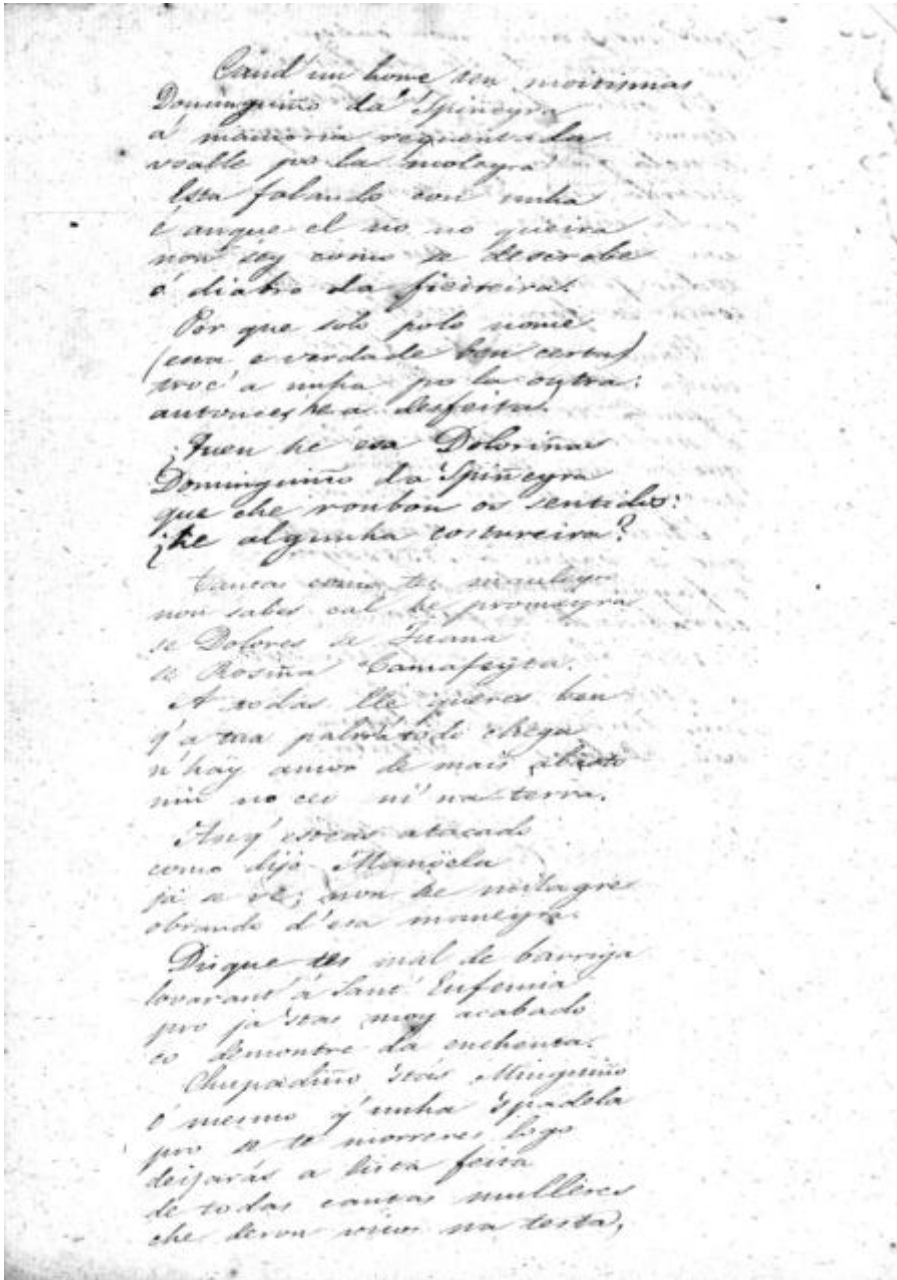 Cand' un home ten moitismas
Dominguiño da 'Spiñeyra
a' memoria requentada
vaille po la moleyra
Esta falando con unha
é anque el no no queira
non sey como se descrobe
o' diabro da fieiteira.
Por que solo polo nome
(esa e verdade ben certa)
troc' a unha po la outra:
antonces he a desfeita.
¿Quen he esa Doloriñas
Dominguiño da 'Spiñeyra
que che roubou os sentidos:
¿he algunha costureira?
Tantas como tes
non sabes cal he promeyra
se Dolores se Juana
se Rosiña Camafeyta.
A todas lle queres ben
q' a tua chega
n' hay amor de mais abasto
nin no ceo ni' na terra.
Anq' esteas atacado
como dijo Manoela
ja se ve; non he milagre
obrando d' esa maneyra.
Disque tes mal de barriga
levarant' á Sant' Eufemia
pro ja 'stas moy acabado
co demontre da enchenta.
Chupadiño 'stás Minguiño
o' mesmo q' unha 'spadela
pro se te morreres logo
deijarás a lista feita
de todas cantas mulleres
che deron na testa,